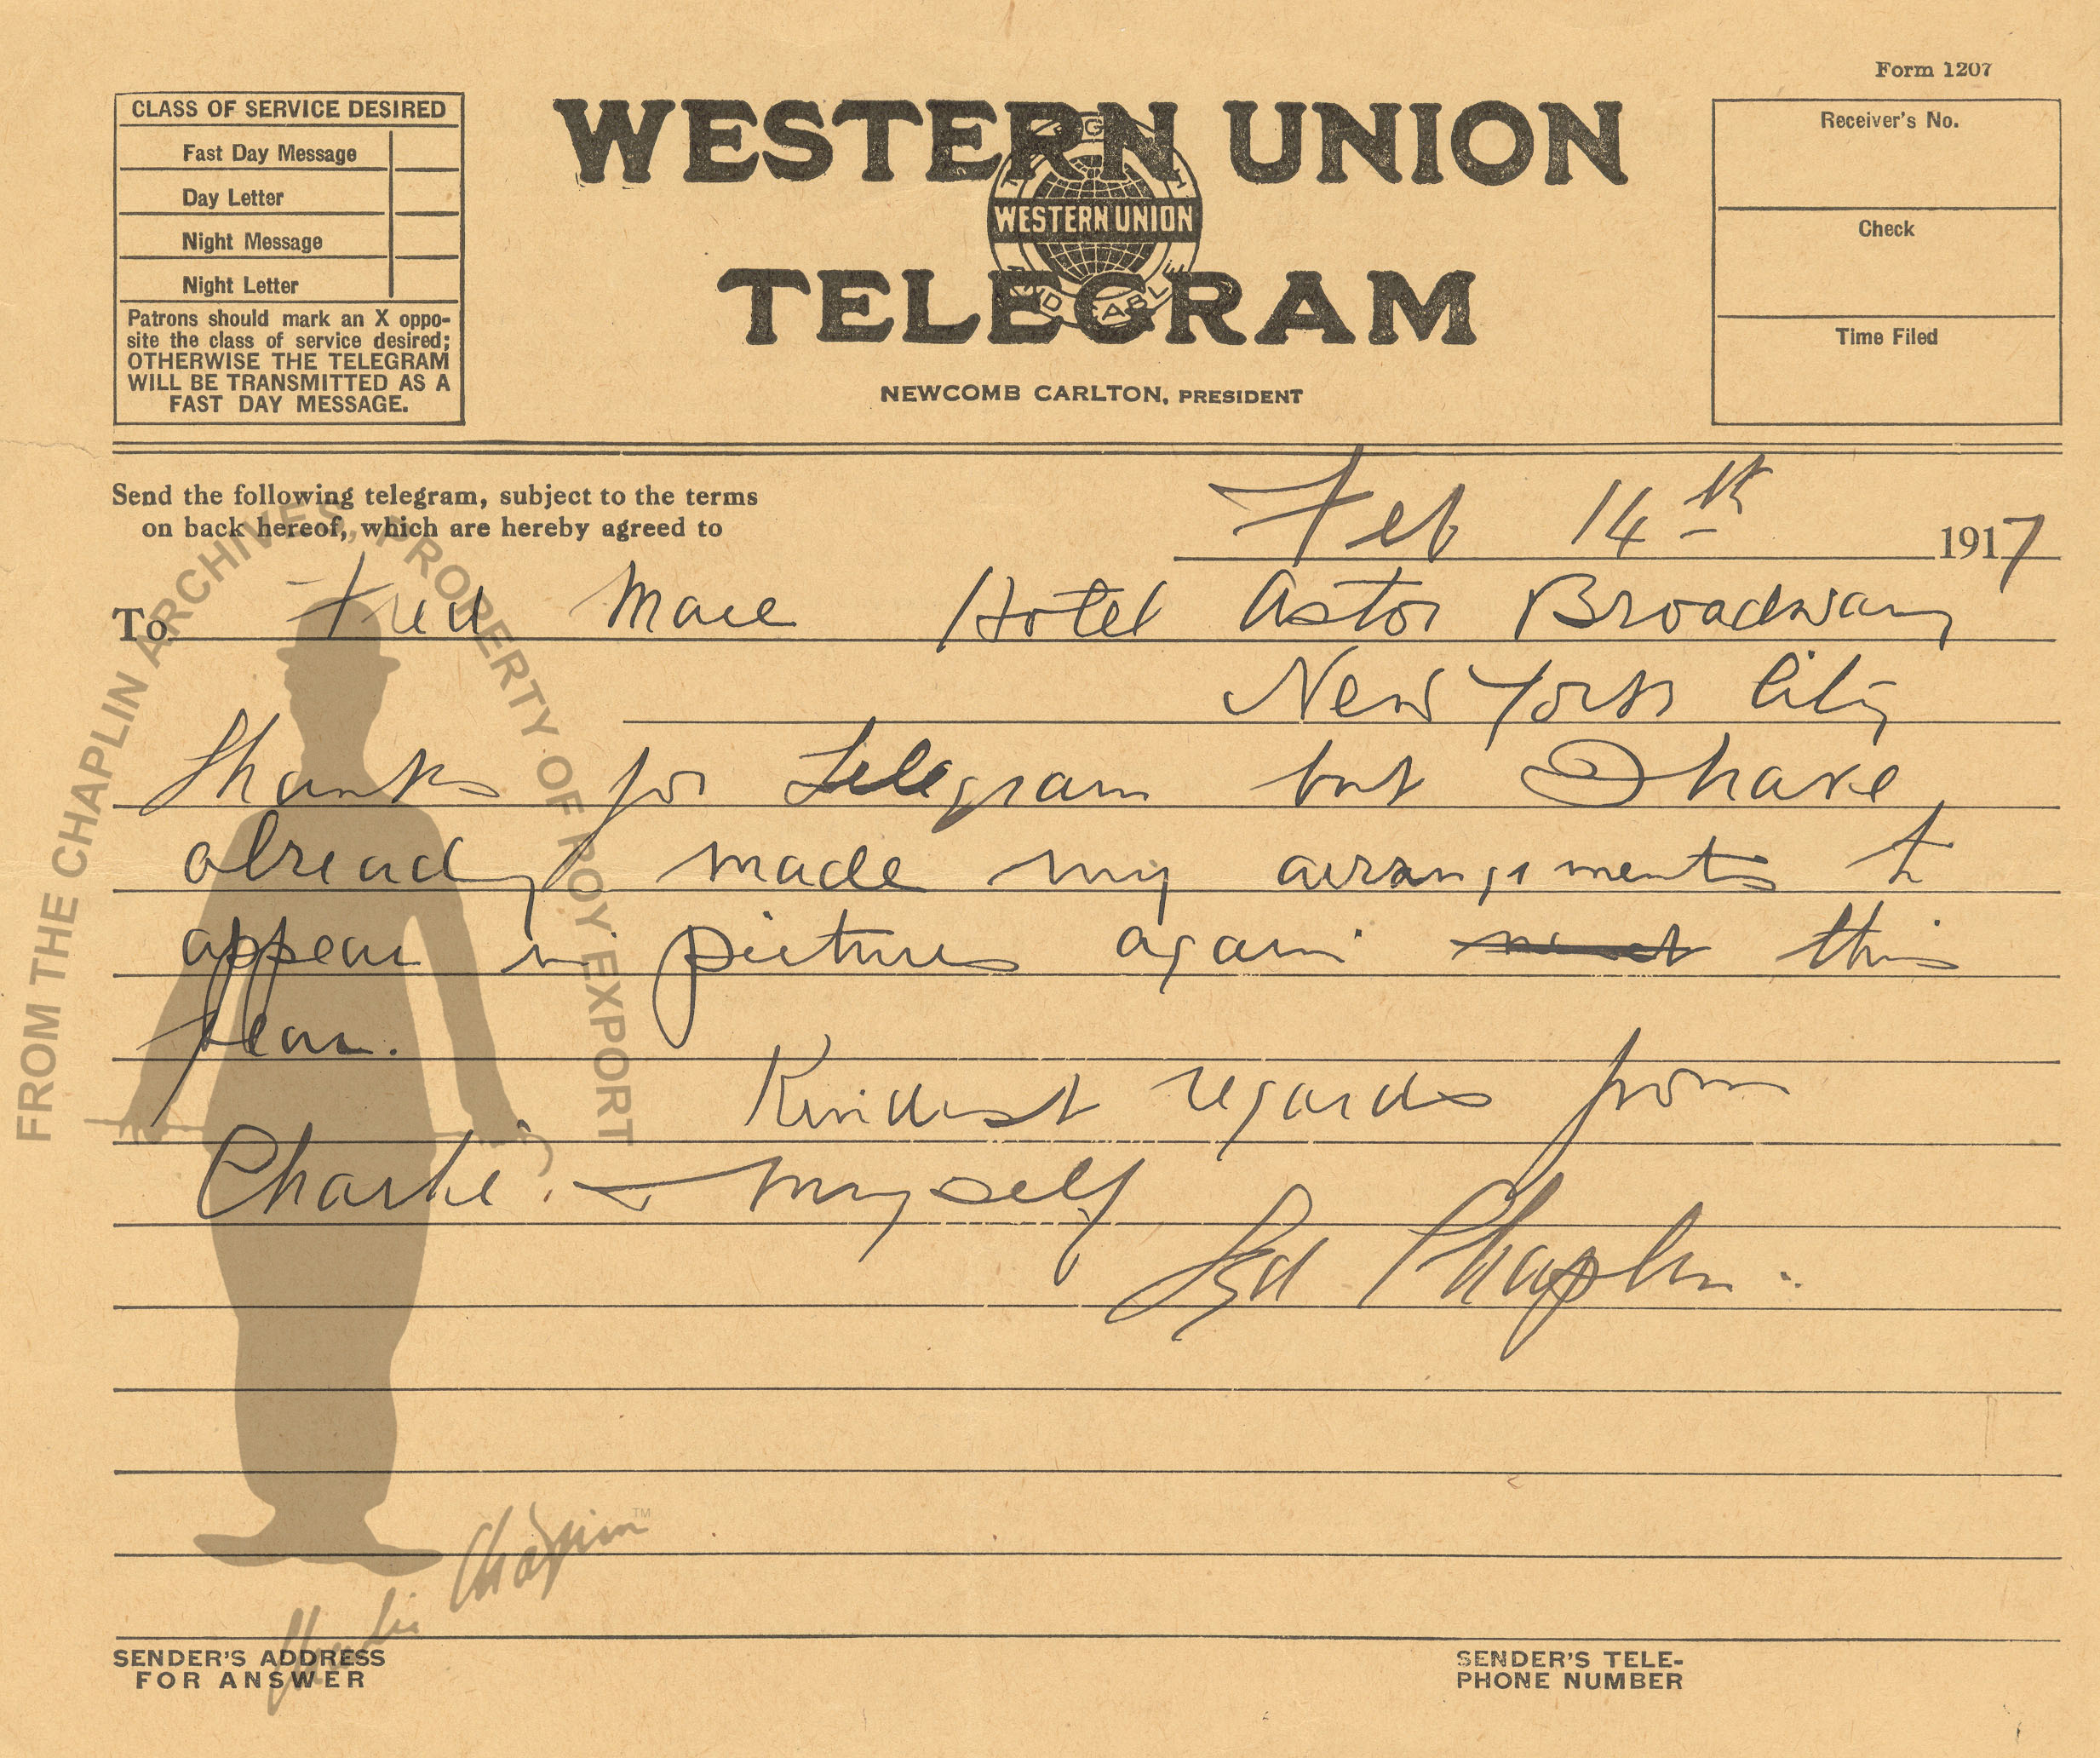 Form 1207
CLASS OF SERVICE DESIRED
Fast Day Message
Day Letter
Night Message
Night Letter
Patrons should mark an X oppo-
site the class of service desired;
OTHERWISE THE TELEGRAM
WILL BE TRANSMITTED AS A
FAST DAY MESSAGE.
WESTERN UNION
WESTERN UNION
TELEGRAM
NEWCOMB CARLTON, PRESIDENT
Receiver's No.
Check
Time Filed
Send the following telegram, subject to the terms
on back hereof, which are hereby agreed to
Feb 14th 1917
To Fred Mace Hotel Astor Broadway
New York City
Thanks for Telegram but I have
already made my arrangements to
appear in pictures again this
year.
Kindest regards from
Charlie & myself
Syd Chaplin
FROM THE CHAPLIN ARCHIVES, PROPERTY OF ROY EXPORT
Charlie Chaplin™
SENDER'S ADDRESS
FOR ANSWER
SENDER'S TELE-
PHONE NUMBER